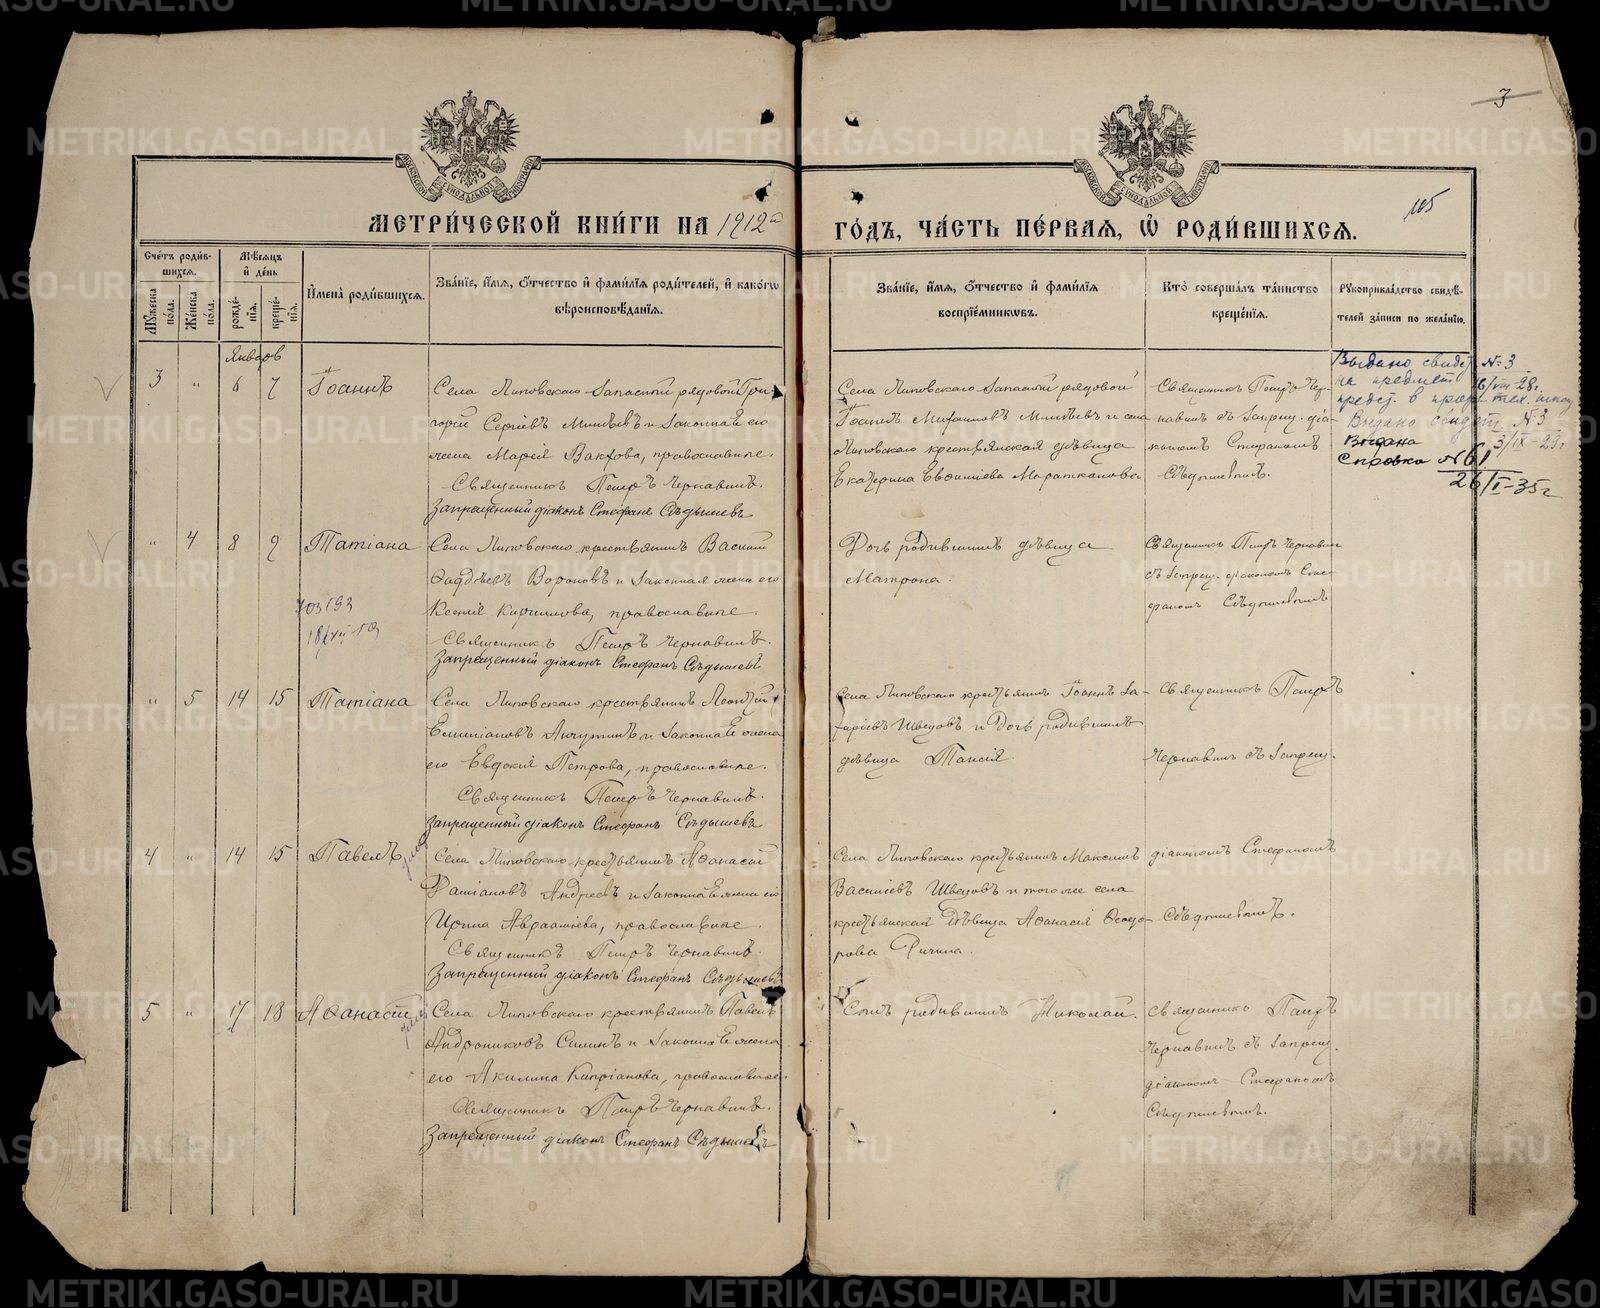 МЕТРИ́ЧЕСКОЙ КНИ́ГИ НА 1912й
ГО́ДЪ, ЧА́СТЬ ПЕ́РВАѦ, Ѡ РОДИ́ВШИХСѦ.
3
Сче́тъ роди́вшихсѧ.
Мꙋ́жеска по́ла.
Же́нска по́ла.
Мѣ́сѧцъ и҆ де́нь
рожде́нїѧ.
креще́нїѧ.
И҆мена̀ роди́вшихсѧ.
Зва́нїе, и҆́мѧ, ѻ҆́тчество и҆ фами́лїѧ роди́телей, и҆ како́гѡ
вѣроисповѣ́данїѧ.
Зва́нїе, и҆́мѧ, ѻ҆́тчество и҆ фами́лїѧ
воспрїе́мникѡвъ.
Кто̀ соверша́лъ та́инство
креще́нїѧ.
Рꙋкоприкла́дство свидѣ́-
телей за́писи по жела́нїю.
Январь
3 " 6 7 Іоаннъ
Села Липовскаго запасный рядовой Гри-
горій Сергіевъ Минѣевъ и законная его
жена Марія Вакхова, православные.
Священникъ Петръ Чернавинъ.
Запрещенный діаконъ Стефанъ Сѣдышевъ
Села Липовскаго запасной рядовой
Іоаннъ Михаиловъ Минѣевъ и села
Липовскаго крестьянская дѣвица
Екатерина Евфиміева Мараткалова
Священникъ Петръ Чер-
навинъ съ запрещ. діа-
кономъ Стефаномъ
Сѣдышевымъ.
Выдано свидет №3
на предмет 16/VIII-28г.
предст. в
Выдано свидет. №3
3/IX-29г
Выдана
Справка №61
26/I-35г
" 4 8 9 Татіана
Села Липовскаго крестьянинъ Василій
Фаддѣевъ Вороновъ и законная жена его
Ксенія Кириллова, православные.
Священникъ Петръ Чернавинъ.
Запрещенный діаконъ Стефанъ Сѣдышевъ
Дочь родившихъ дѣвица
Матрона.
Священникъ Петръ Чернавин
съ запрещ. діакономъ Сте-
фаномъ Сѣдышевымъ
" 5 14 15 Татіана
Села Липовскаго крестьянинъ Леонтій
Емиліановъ Анчутинъ и законная жена
его Евдокія Петрова, православные.
Священникъ Петръ Чернавинъ.
Запрещенный діаконъ Стефанъ Сѣдышевъ
Села Липовскаго крестьянинъ Іоаннъ За-
харіевъ Швецовъ и дочь родившихъ
дѣвица Таисія.
Священникъ Петръ
Чернавинъ съ запрещ.
4 " 14 15 Павелъ
Села Липовскаго крестьянинъ Аѳанасій
Даміановъ Андреевъ и законная жена его
Ирина Авраамиева, православные.
Священникъ Петръ Чернавинъ.
Запрещенный діаконъ Стефанъ Сѣдышевъ
Села Липовскаго крестьянинъ Максимъ
Василіевъ Швецовъ и того же села
крестьянская дѣвица Аѳанасія Ѳеодо-
рова
діакономъ Стефаномъ
Сѣдышевымъ.
5 " 17 18 Аѳанасій
Села Липовскаго крестьянинъ Павелъ
Андрониковъ Силинъ и законная жена
его Акилина Кипріанова, православные
Священникъ Петръ Чернавинъ.
Запрещенный діаконъ Стефанъ Сѣдышевъ
Сынъ родившихъ Николай.
Священникъ Петръ
Чернавинъ съ запрещ.
діакономъ Стефаномъ
Сѣдышевымъ.
METRIKI.GASO-URAL.RU